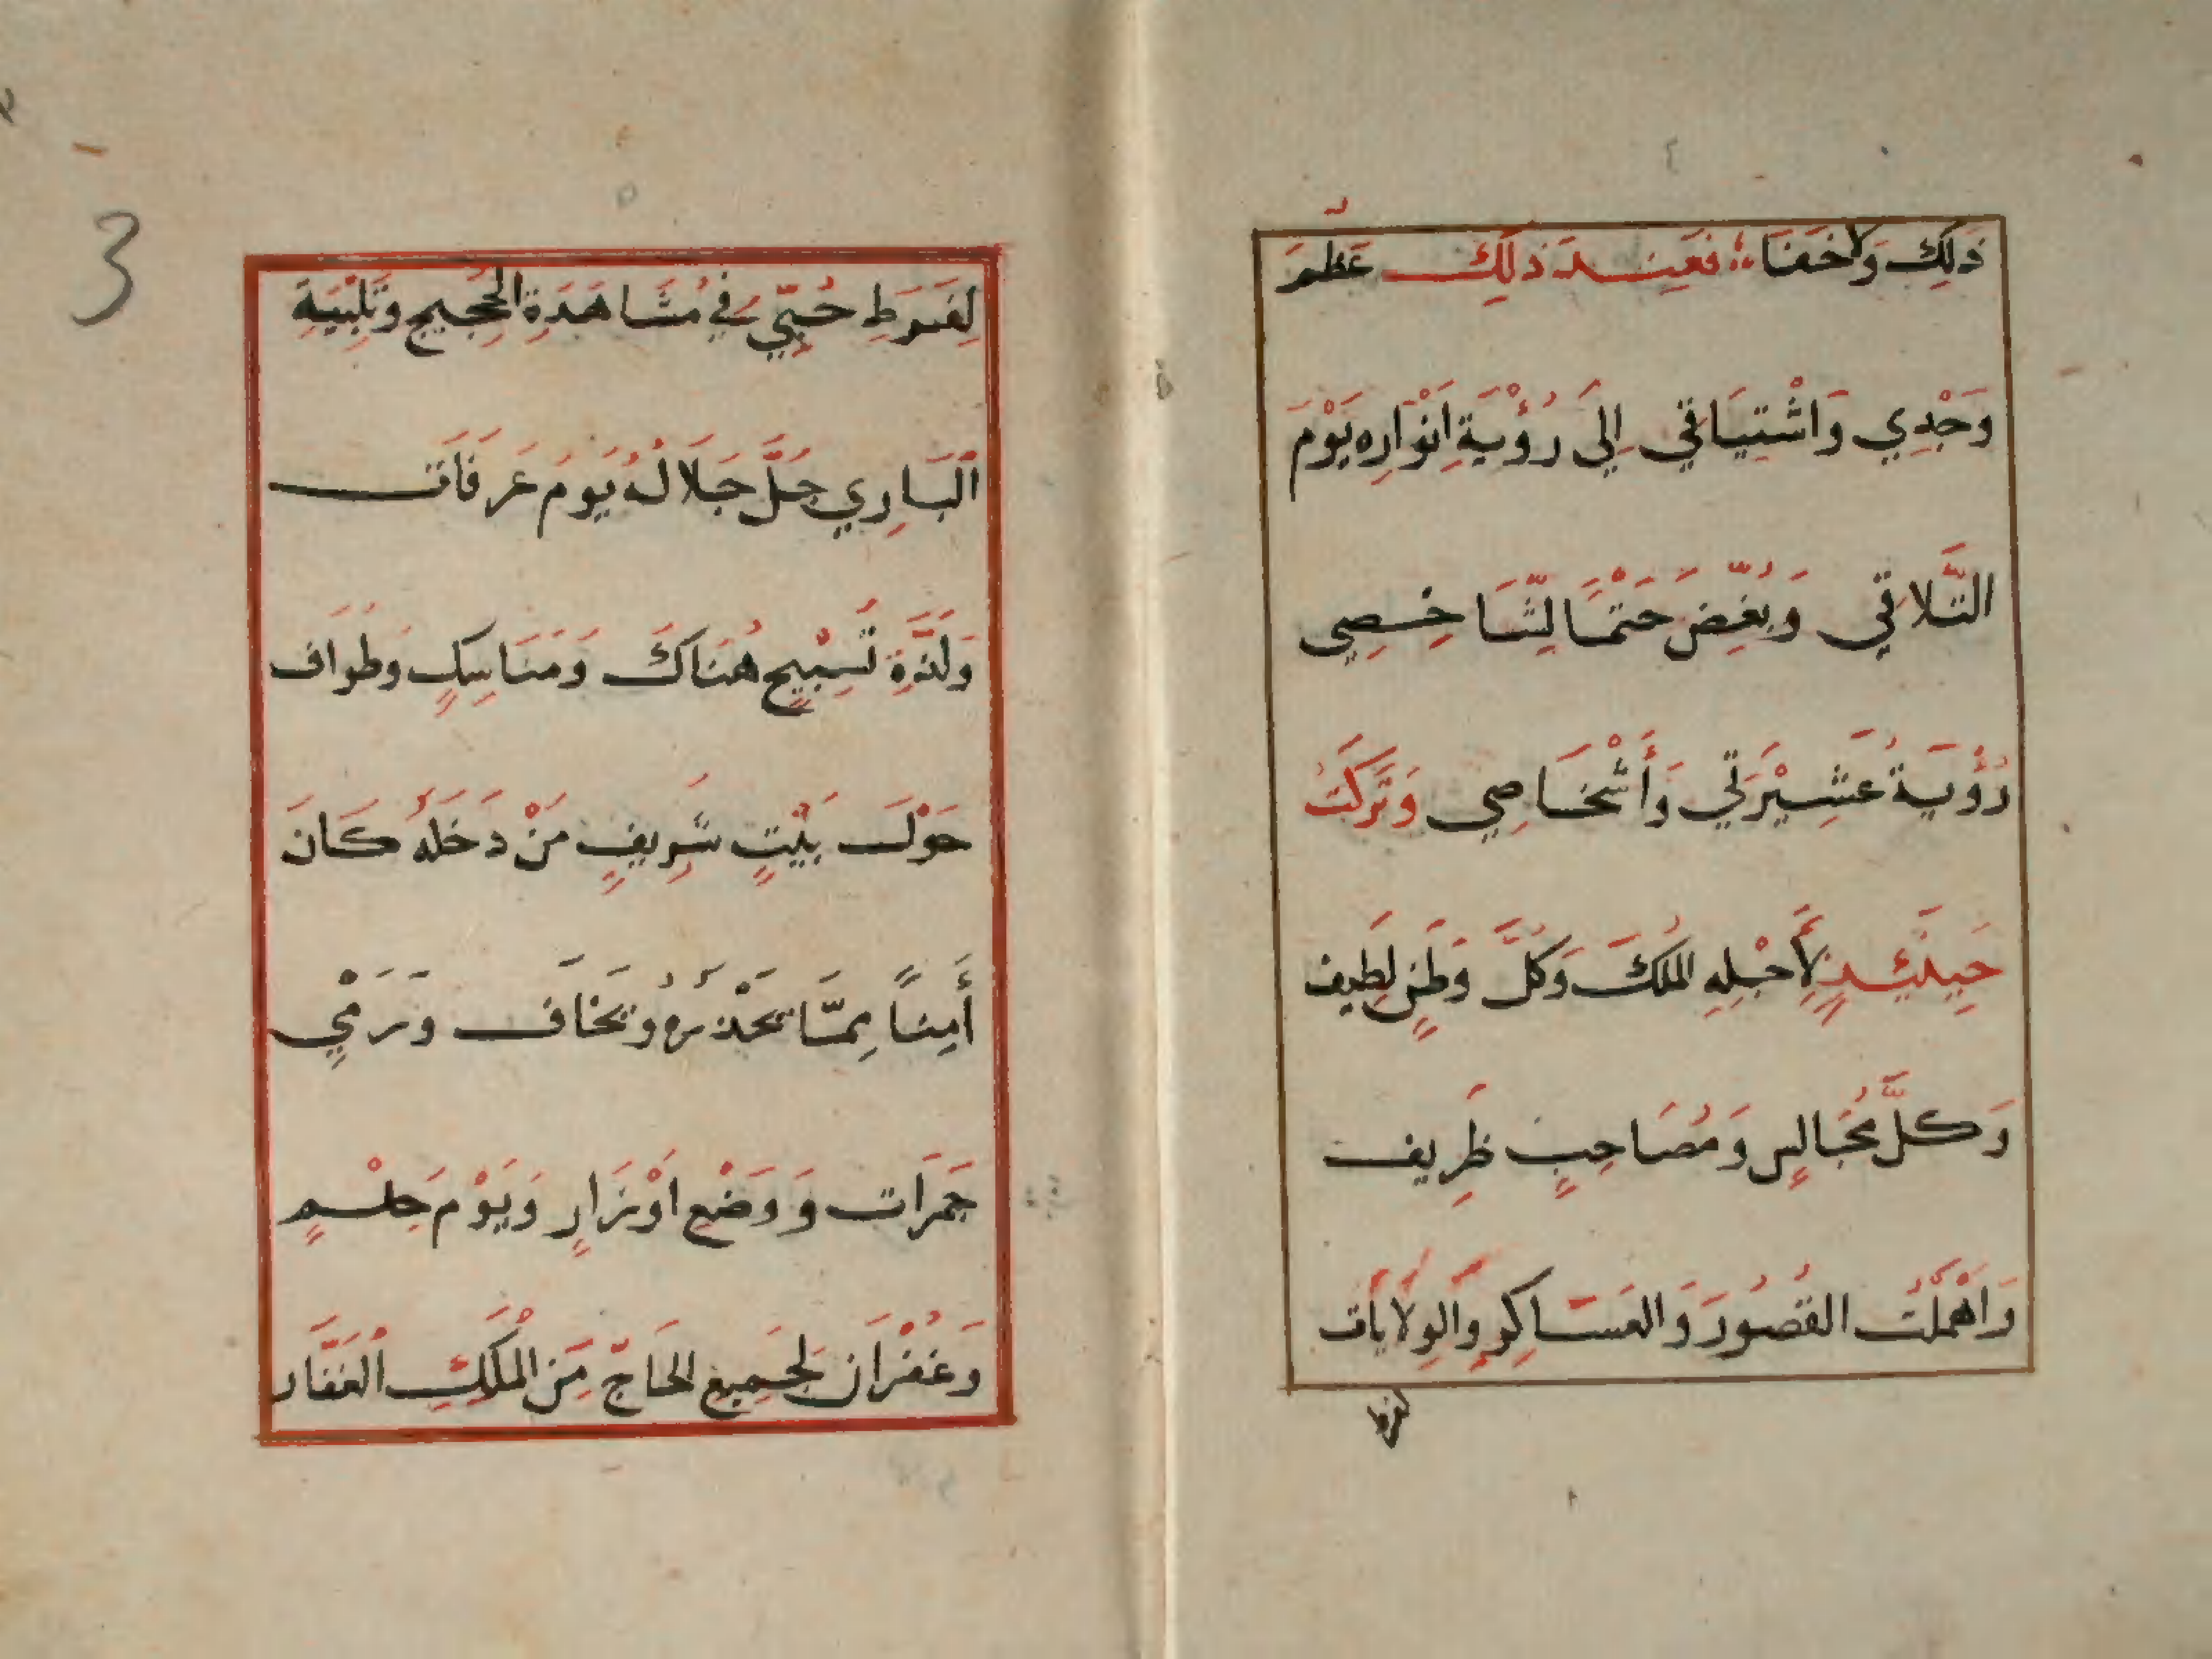 ذَلِكَ وَلَاخَفَا؛ فَعِنْدَ ذَلِكَ عَظُمَ
وَجْدِي وَاشْتِيَاقِي إِلَى رُؤْيَةِ أَنْوَارِه يَوْمَ
التَّلَاقِي وَبُغِّضَ حَتْمًا لِشَاخِصِي
رُؤْيَةُ عَشِيْرَتِي وَأَشْخَاصِي وَتَرَكْتُ
حِينَئِذٍ لِأَجْلِهِ المُلْكَ وَكُلَّ وَطَنٍ لَطِيف
وَكُلَّ مُجَالِسٍ وَمُصَاحِبٍ ظَرِيف
وَاهْمَلْتُ القُصُورَ وَالعَسَاكِرَ وَالوِلَايَات
لفرط
لِفَرَطِ حُبِّي فِي مُشَاهَدَةِ الحَجِيجِ وَتَلْبِيَةِ
الْبَارِي جَلَّ جَلَالُهُ يَوْمَ عَرَفَات
وَلَذَّةِ تَسْبِيحٍ هُنَاكَ وَمَنَاسِكٍ وَطَوَاف
حَوْلَ بَيْتٍ شَرِيفٍ مَنْ دَخَلَهُ كَانَ
أَمِنًا مِمَّا يَحْذَرُهُ وَيَخَاف وَرَمْيِ
جَمَرَات وَوَضْعِ اوْزَارٍ وَيَوْمَ حِلْمٍ
وَغُفْرَان لِجَمِيعِ الحَاجِّ مِنَ المَلِكِ الْغَفَّار
3